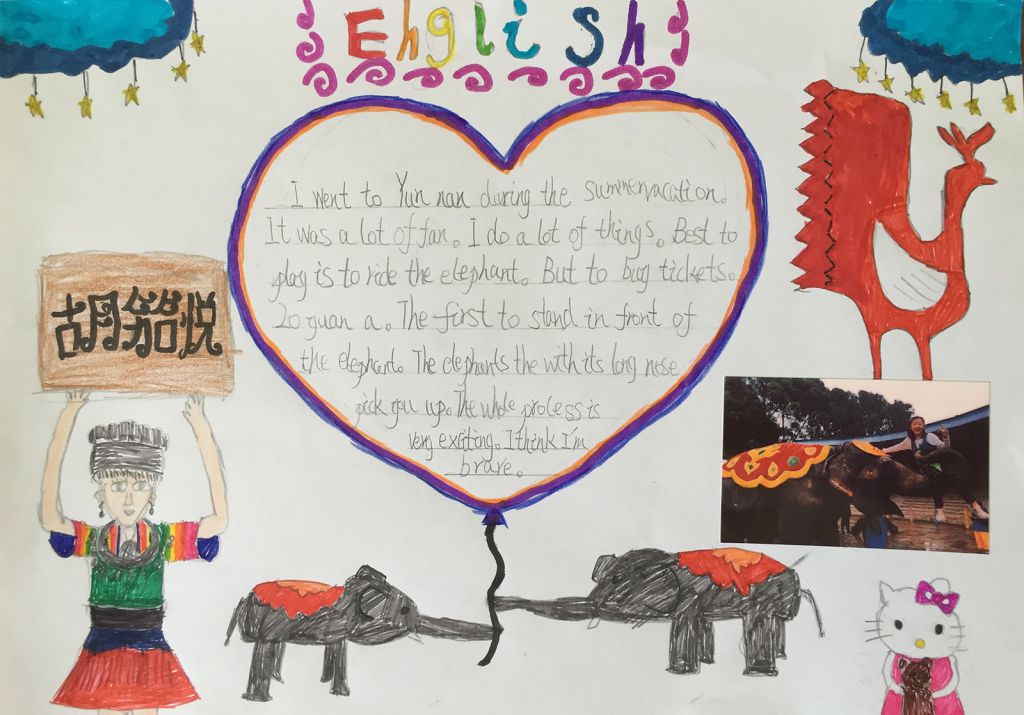 English
I went to Yun nan during the summervacation.
It was a lot of fan. I do a lot of things. Best to
play is to ride the elephant. But to bug tickets.
20 yuan a. The first to stand in front of
the elephant. The elephants the with its long nose
pick you up. The whole process is
very exciting. I think I'm
brave.
胡笤悦